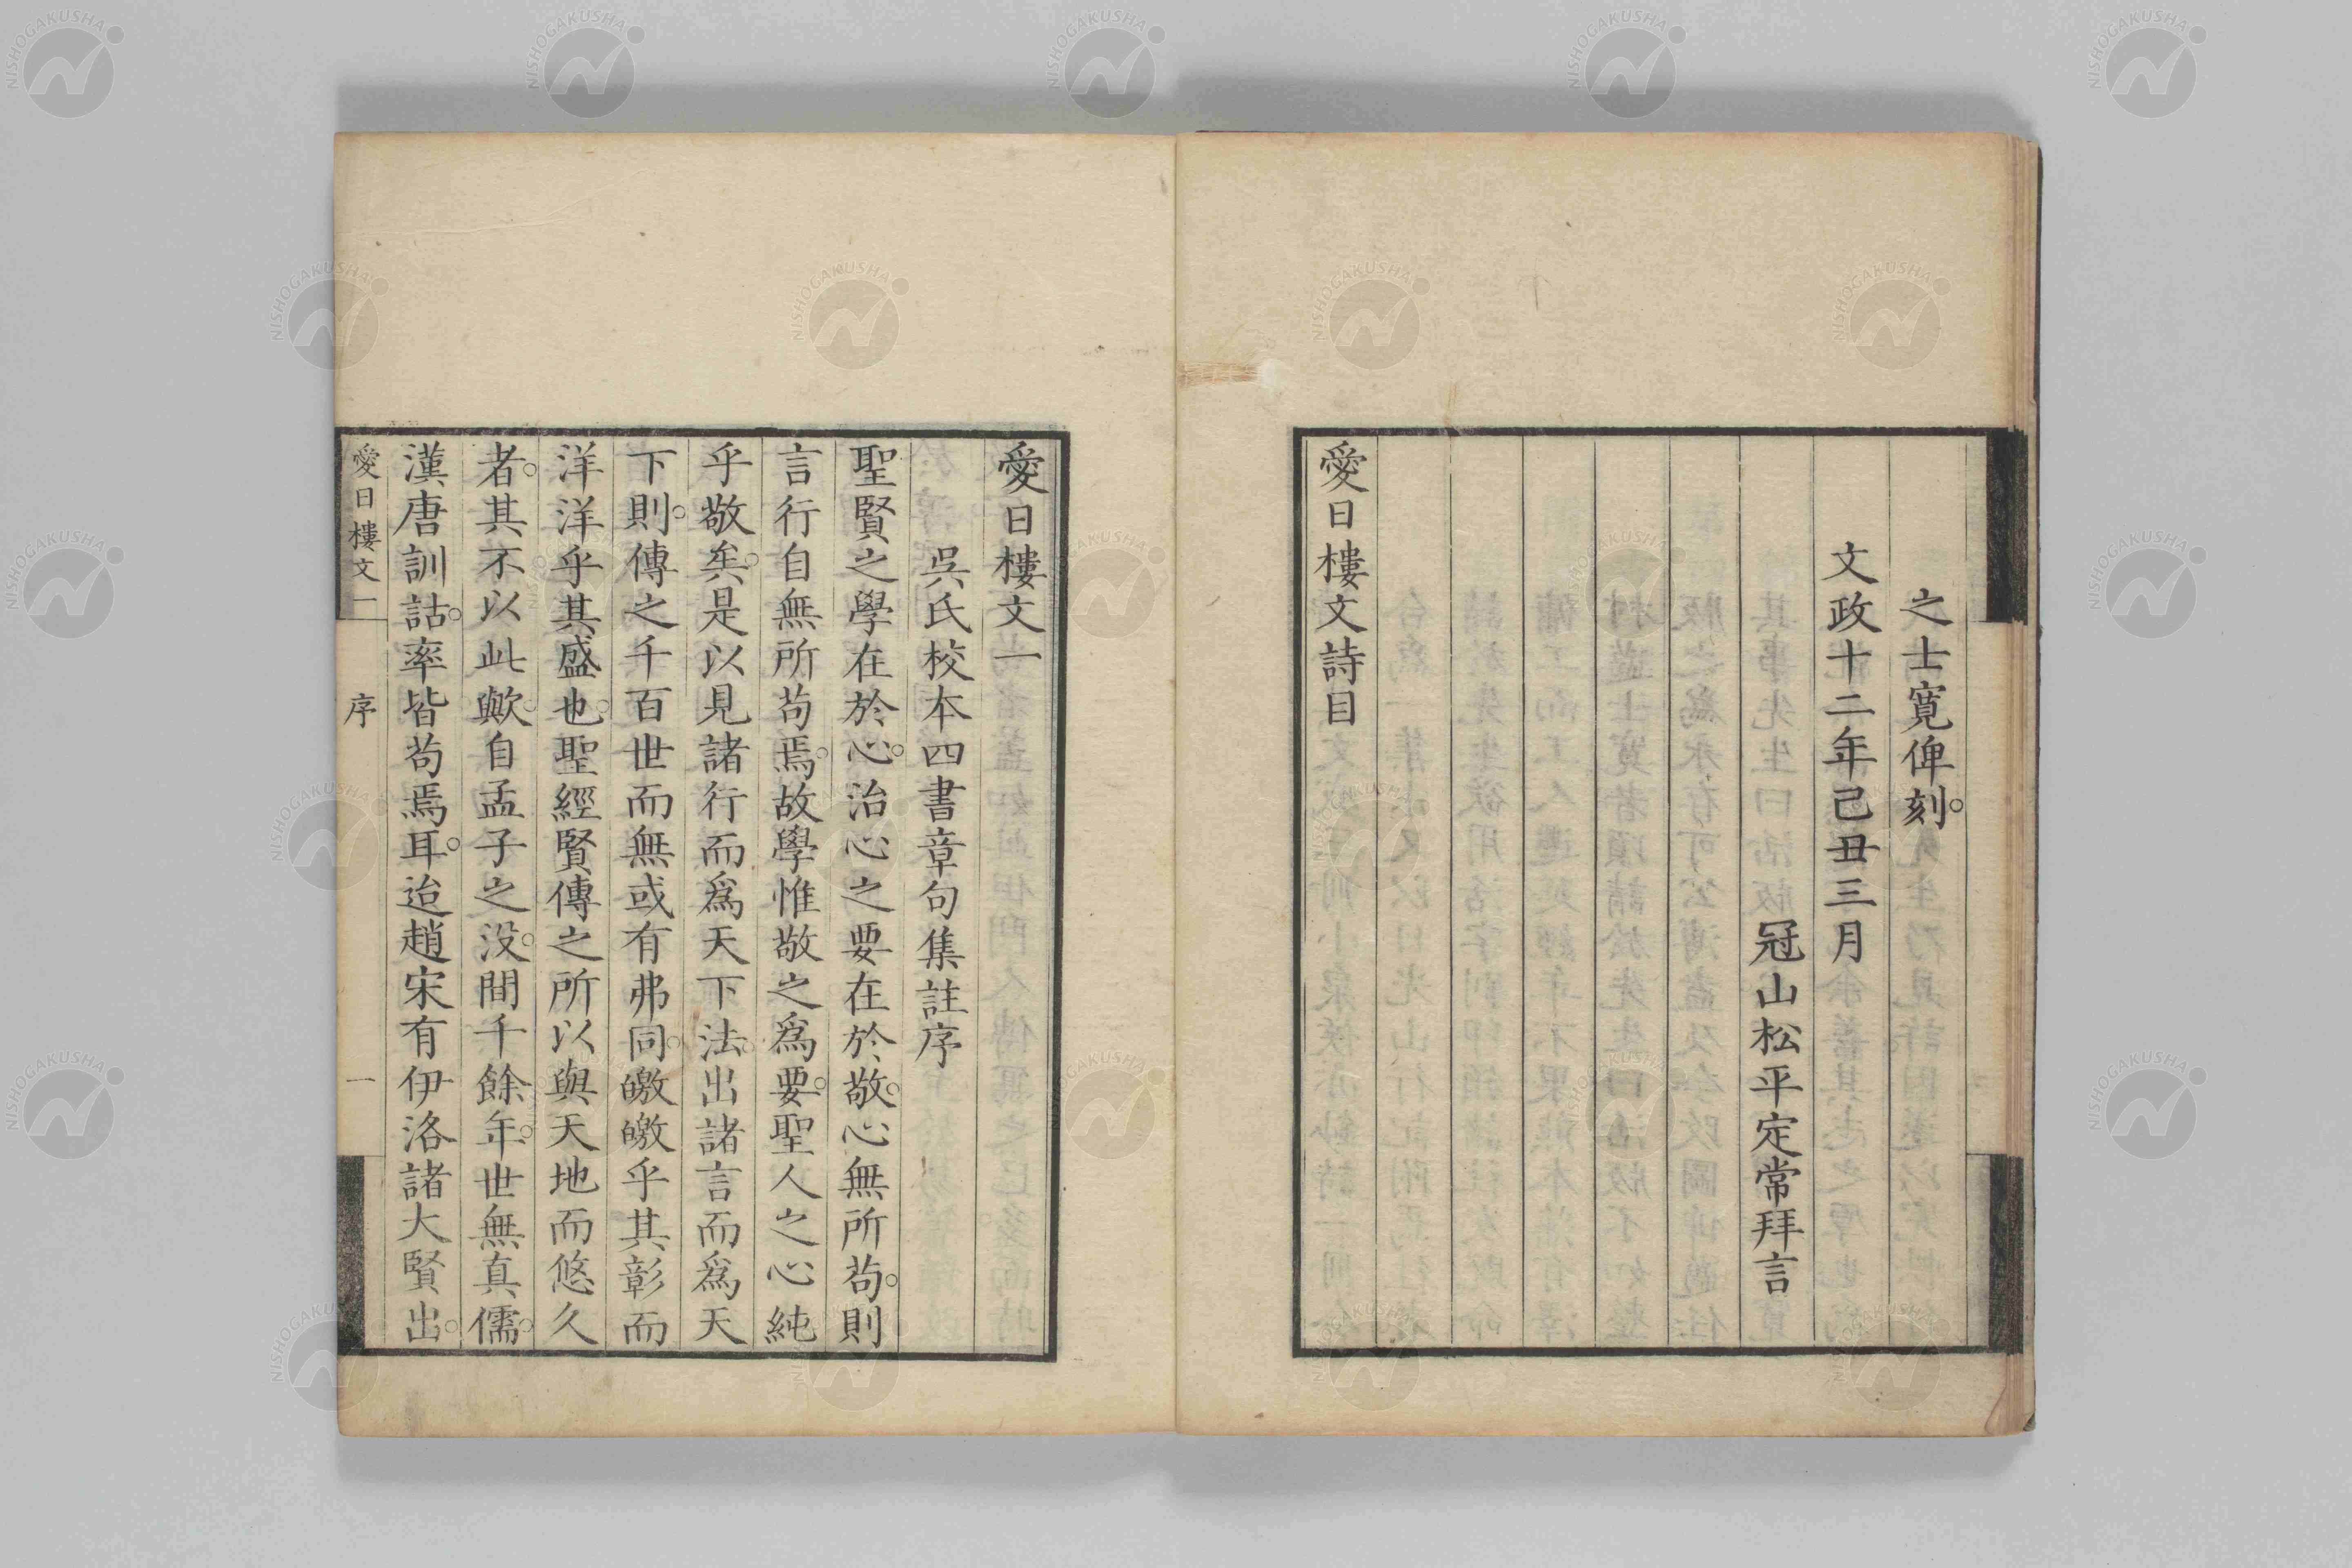 之士寬俾刻。
文政十二年己丑三月
冠山松平定常拜言
愛日樓文詩目
愛日樓文一
吳氏校本四書章句集註序
聖賢之學在於心。治心之要在於敬。心無所苟。則
言行自無所苟焉。故學惟敬之爲要。聖人之心純
乎敬矣。是以見諸行而爲天下法。出諸言而爲天
下則。傳之千百世而無或有弗同。皦皦乎其彰而
洋洋乎其盛也。聖經賢傳之所以與天地而悠久
者。其不以此歟。自孟子之没。間千餘年。世無真儒。
漢唐訓詁。率皆苟焉耳。迨趙宋有伊洛諸大賢出。
愛日樓文一 序 一
NISHOGAKUSHA